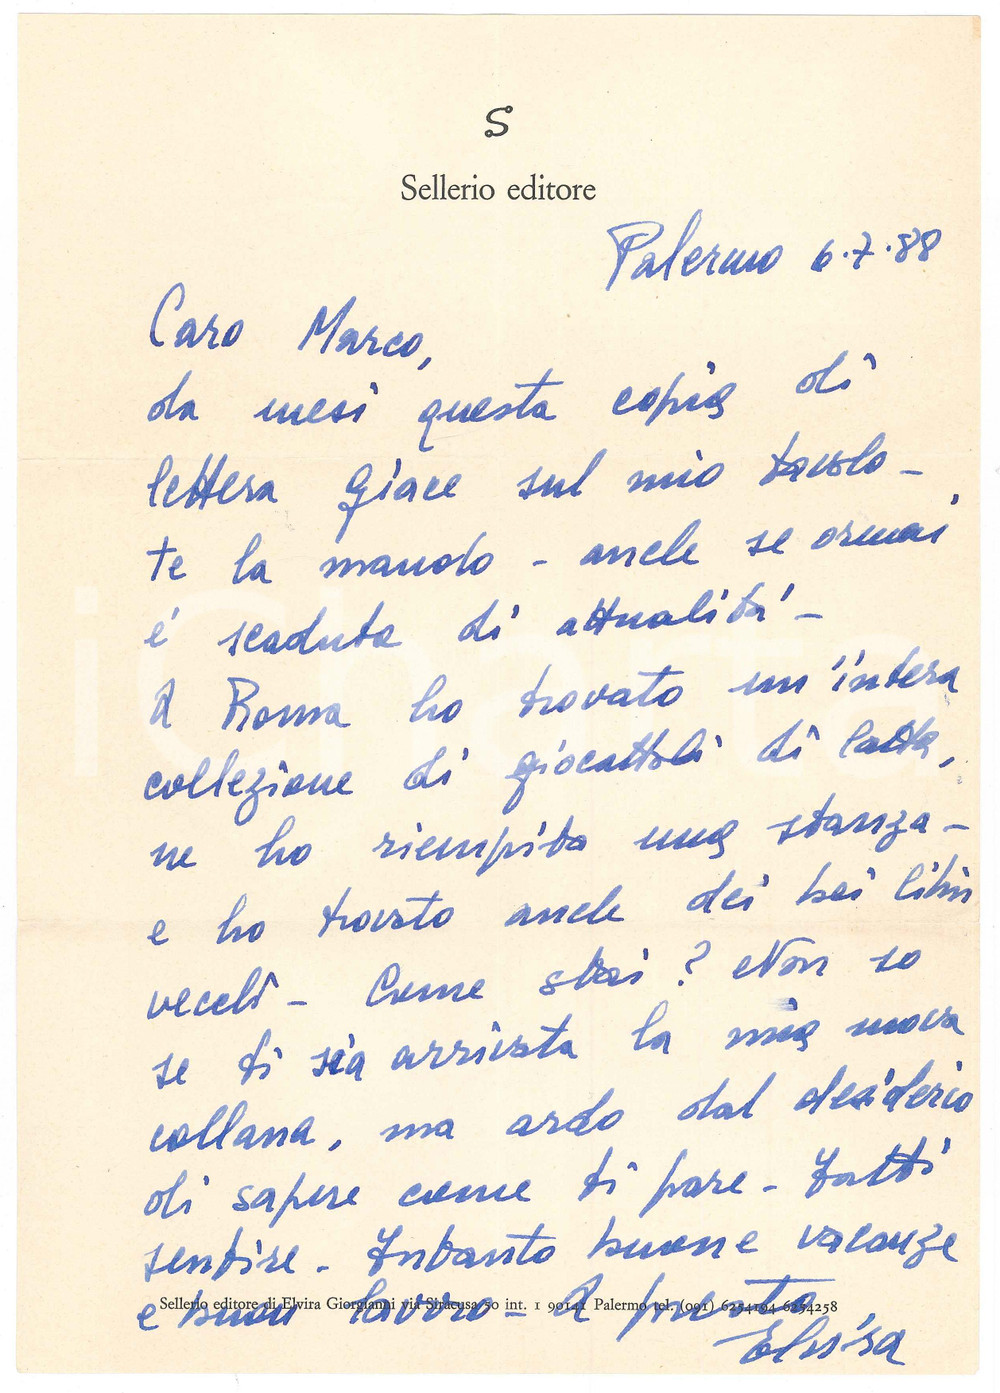 S
Sellerio editore
Palermo 6.7.88
Caro Marco,
da mesi questa copia di
lettera giace sul mio tavolo -
te la mando - anche se ormai
é scaduta di attualitá -
A Roma ho trovato un'intera
collezione di giocattoli di latta,
ne ho riempita una stanza -
e ho trovato anche dei bei libri
vecchi - Come stai? Non so
se ti sia arrivata la mia nuova
collana, ma ardo dal desiderio
di sapere come ti pare - Fatti
sentire - Intanto buone vacanze
e buon lavoro - A presto
Sellerio editore di Elvira Giorgianni via Siracusa 50 int. 1 90141 Palermo tel. (091) 6254194-6254258
Elvira
iCharta